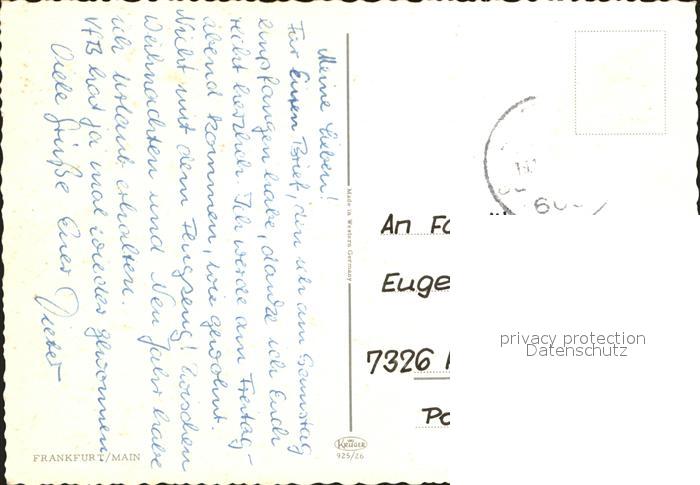 Meine Lieben!
Für Euren Brief, den ich am Samstag
empfangen habe, danke ich Euch
recht herzlich. Ich werde am Freitag-
abend kommen, wie gewohnt.
Nicht mit dem Flugzeug! Zwischen
Weihnachten und Neujahr habe
ich Urlaub erhalten.
VfB hat ja mal wieder gewonnen
Viele Grüße Euer Dieter
FRANKFURT/MAIN
Made in Western Germany
KRÜGER
925/26
An Fa
Euge
7326
Po
privacy protection
Datenschutz